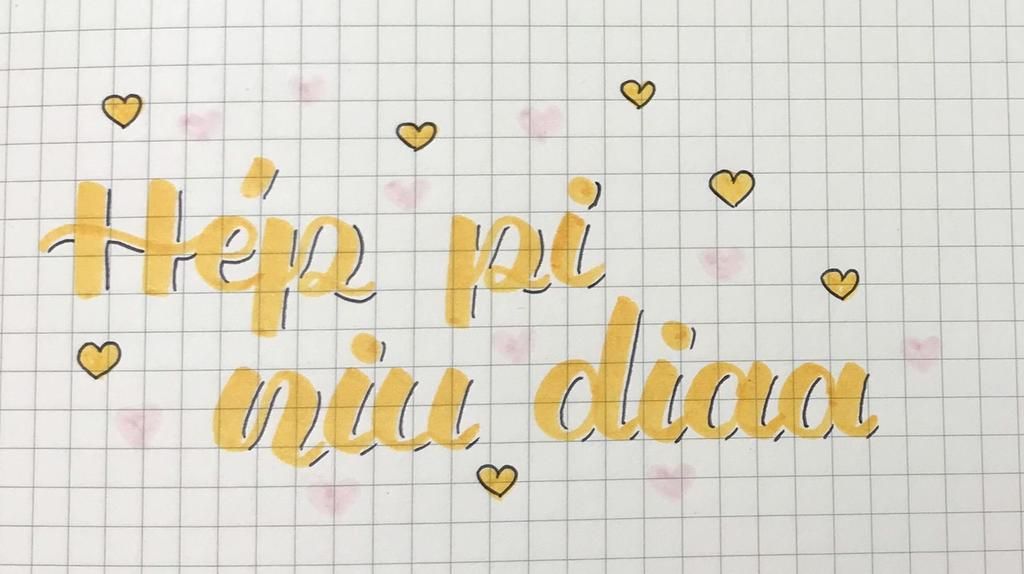 Hép pi
niu diaa